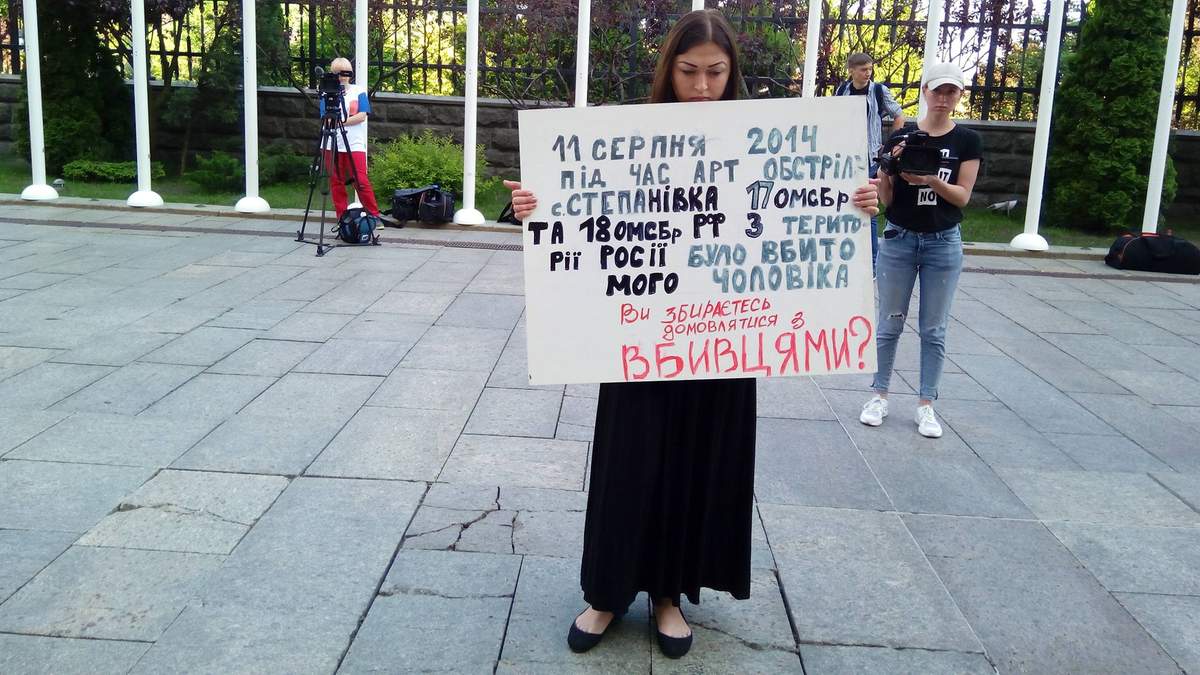 11 СЕРПНЯ 2014
ПІД ЧАС АРТ ОБСТРІЛ
с.СТЕПАНІВКА 17 ОМСБр
ТА 18 ОМСБр РФ З ТЕРИТО
РІЇ РОСІЇ БУЛО ВБИТО
МОГО ЧОЛОВІКА
Ви збираєтесь
домовлятися з
ВБИВЦЯМИ?
NO